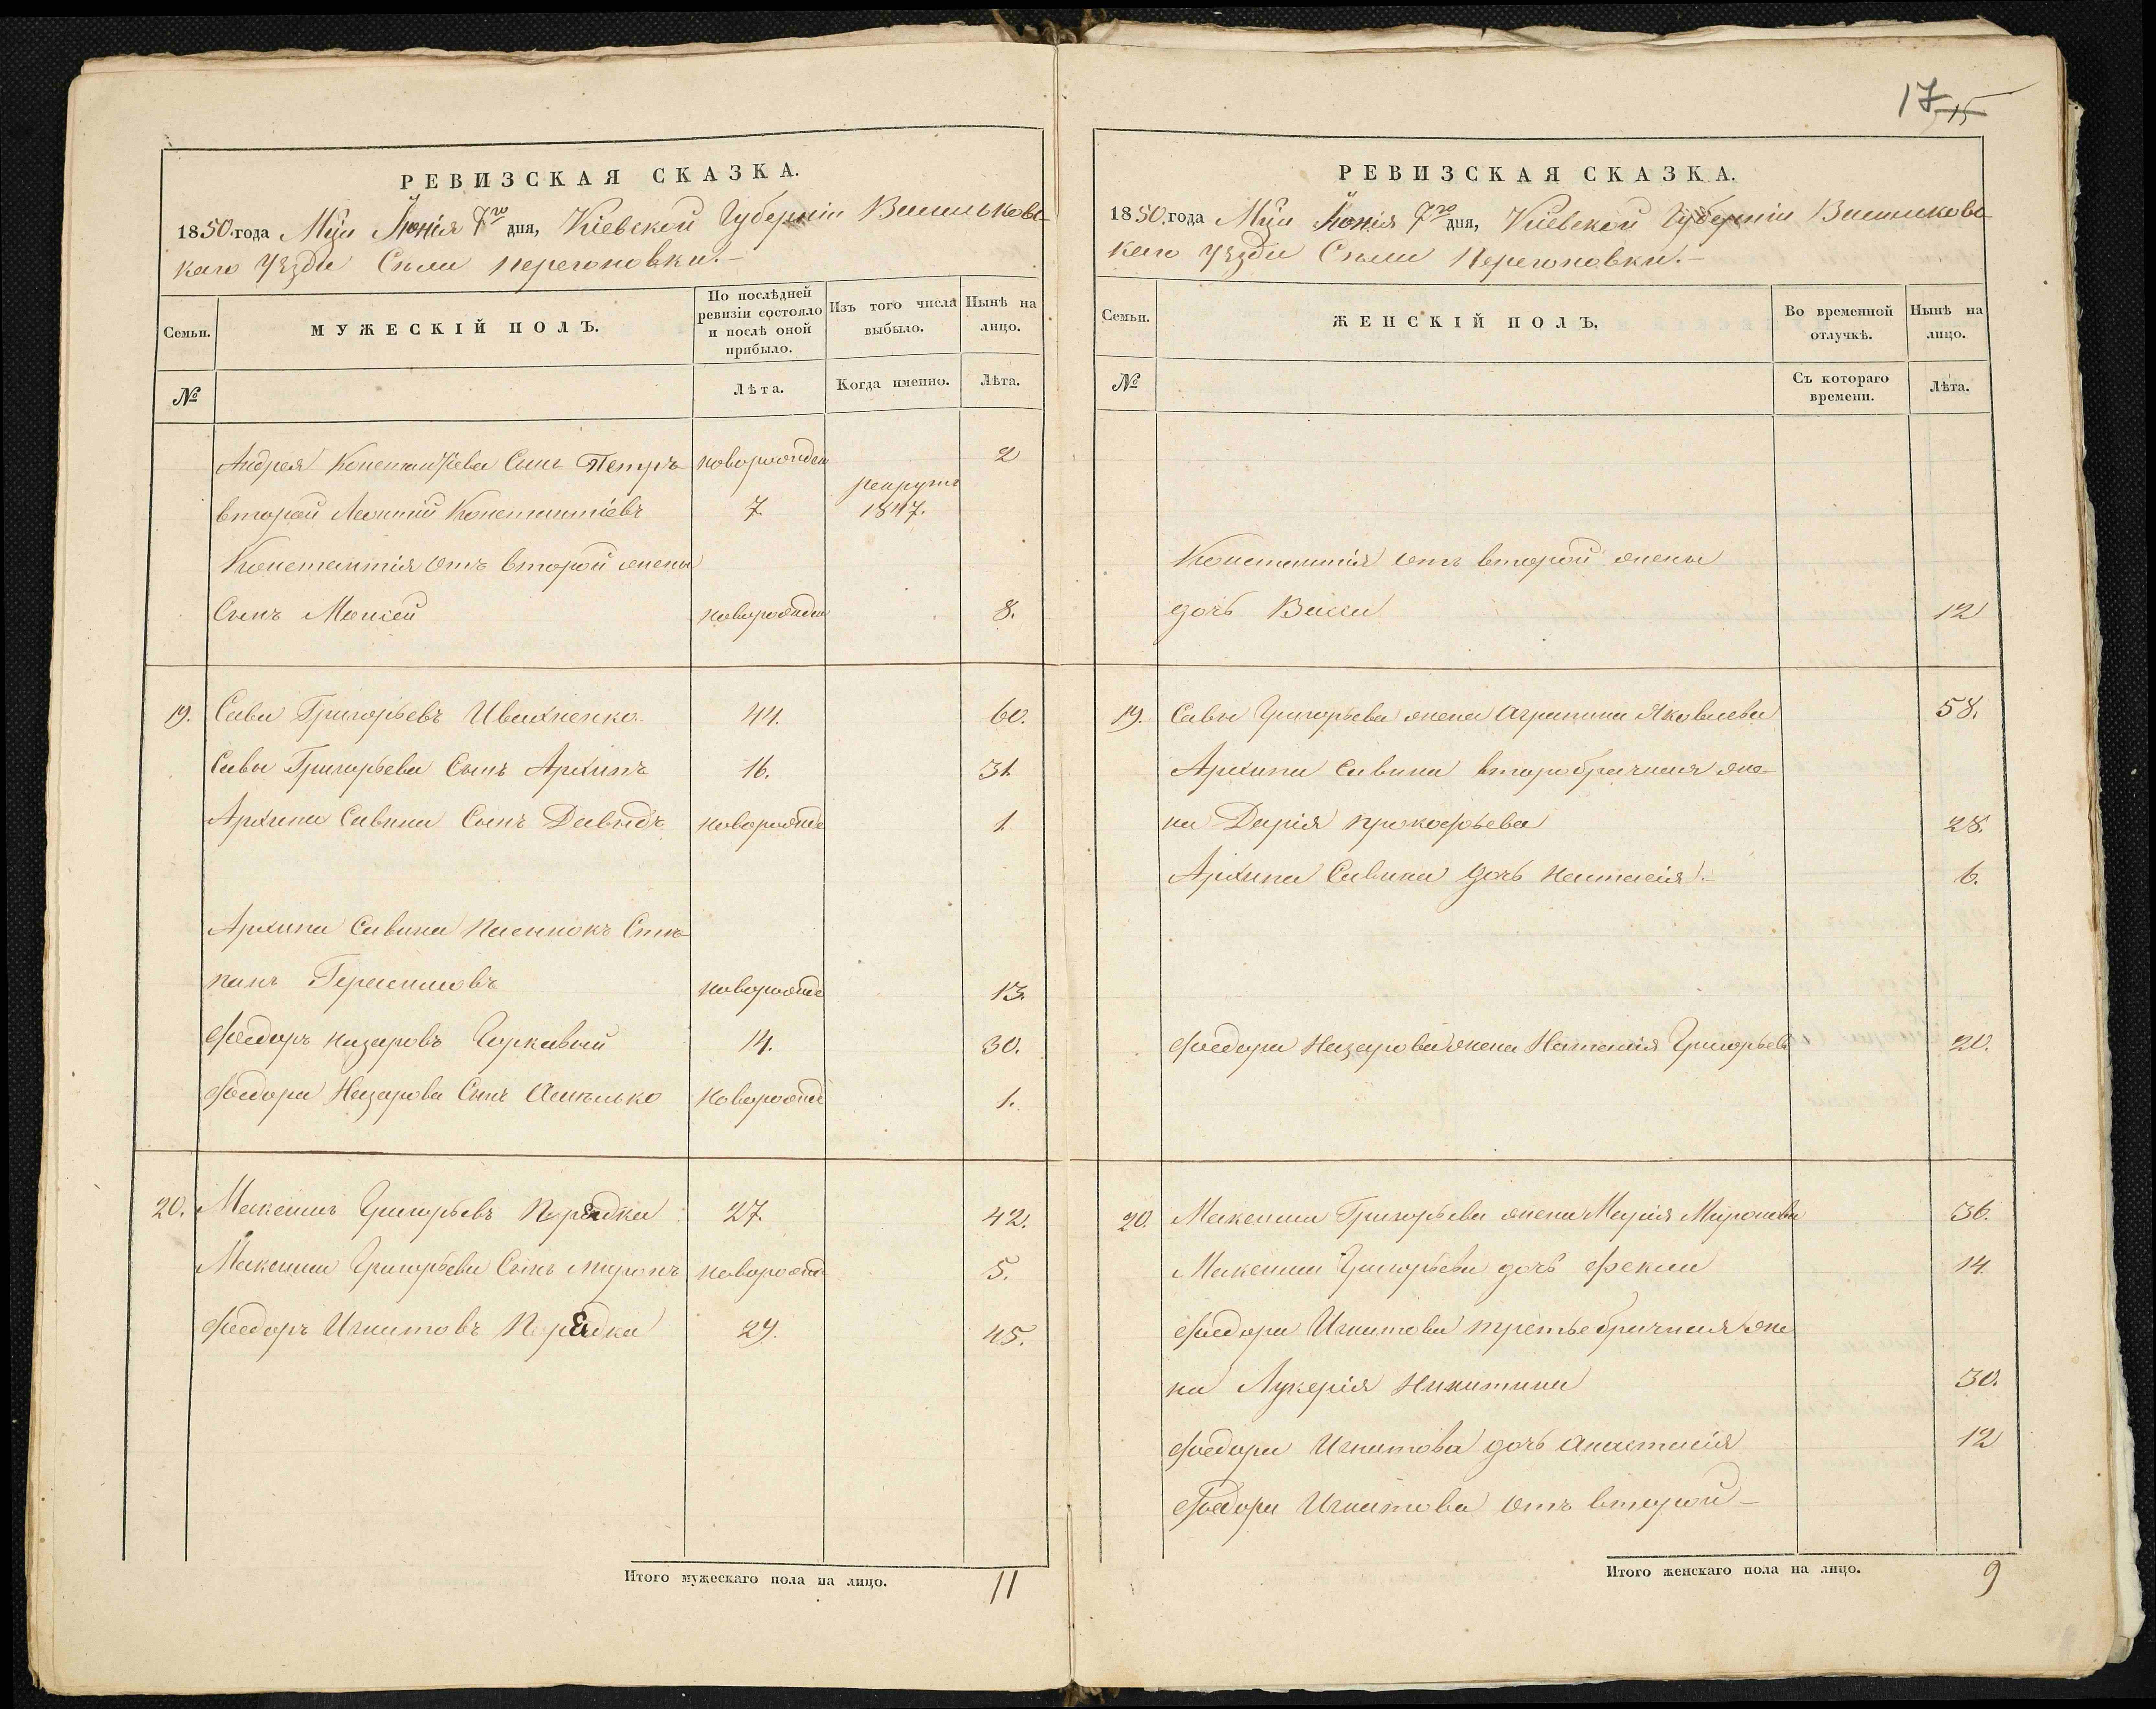 17 15
РЕВИЗСКАЯ СКАЗКА.
1850 года Мца Іюнія 7го дня, Кіевской Губерніи Васильковс-
каго Уезда Села Перегоновки.-
Семьи.
МУЖЕСКІЙ ПОЛЪ.
По послѣдней ревизіи состояло и послѣ оной прибыло.
Изъ того числа выбыло.
Нынѣ на лицо.
№
Лѣта.
Когда именно.
Лѣта.
Андрея Константіева Сынъ Петръ новорожден 2
второй Леонтій Константіевъ 7 рекрутъ 1847.
Константія отъ второй жены
Сынъ Моисей новорожден 8.
19. Сава Григорьевъ Ивахненко 44. 60.
Савы Григорьева Сынъ Архипъ 16. 31
Архипа Савина Сынъ Давидъ новорожде 1
Архипа Савина Пасынокъ Сте-
панъ Герасимовъ новорожде 13.
Феодоръ Назаровъ Горкавый 14. 30.
Феодора Назарова Сынъ Омелько новорожде 1.
20. Максимъ Григорьевъ Порадка 27. 42.
Максима Григорьева Сынъ Миронъ новорожд 5.
Феодоръ Игнатовъ Порадка 29. 45.
Итого мужескаго пола на лицо. 11
РЕВИЗСКАЯ СКАЗКА.
1850 года Мца Іюнія 7го дня, Кіевской Губерніи Васильковс-
каго Уезда Села Перегоновки.-
Семьи.
ЖЕНСКІЙ ПОЛЪ.
Во временной отлучкѣ.
Нынѣ на лицо.
№
Съ котораго времени.
Лѣта.
Константія отъ второй жены
дочь Васса 12
19. Савы Григорьева жена Агрипина Яковлева 58.
Архипа Савина второбрачная же-
на Дарія Прокофьева 28.
Архипа Савина дочь Настасія.- 6.
Феодора Назарова жена Наталія Григорьев 20.
20. Максима Григорьева жена Марія Миронова 36.
Максима Григорьева дочь Фекла 14
Феодора Игнатова третьебрачная же
на Лукерія Никитина 30.
Феодора Игнатова дочь Анастасія 12
Феодора Игнатова отъ второй-
Итого женскаго пола на лицо. 9